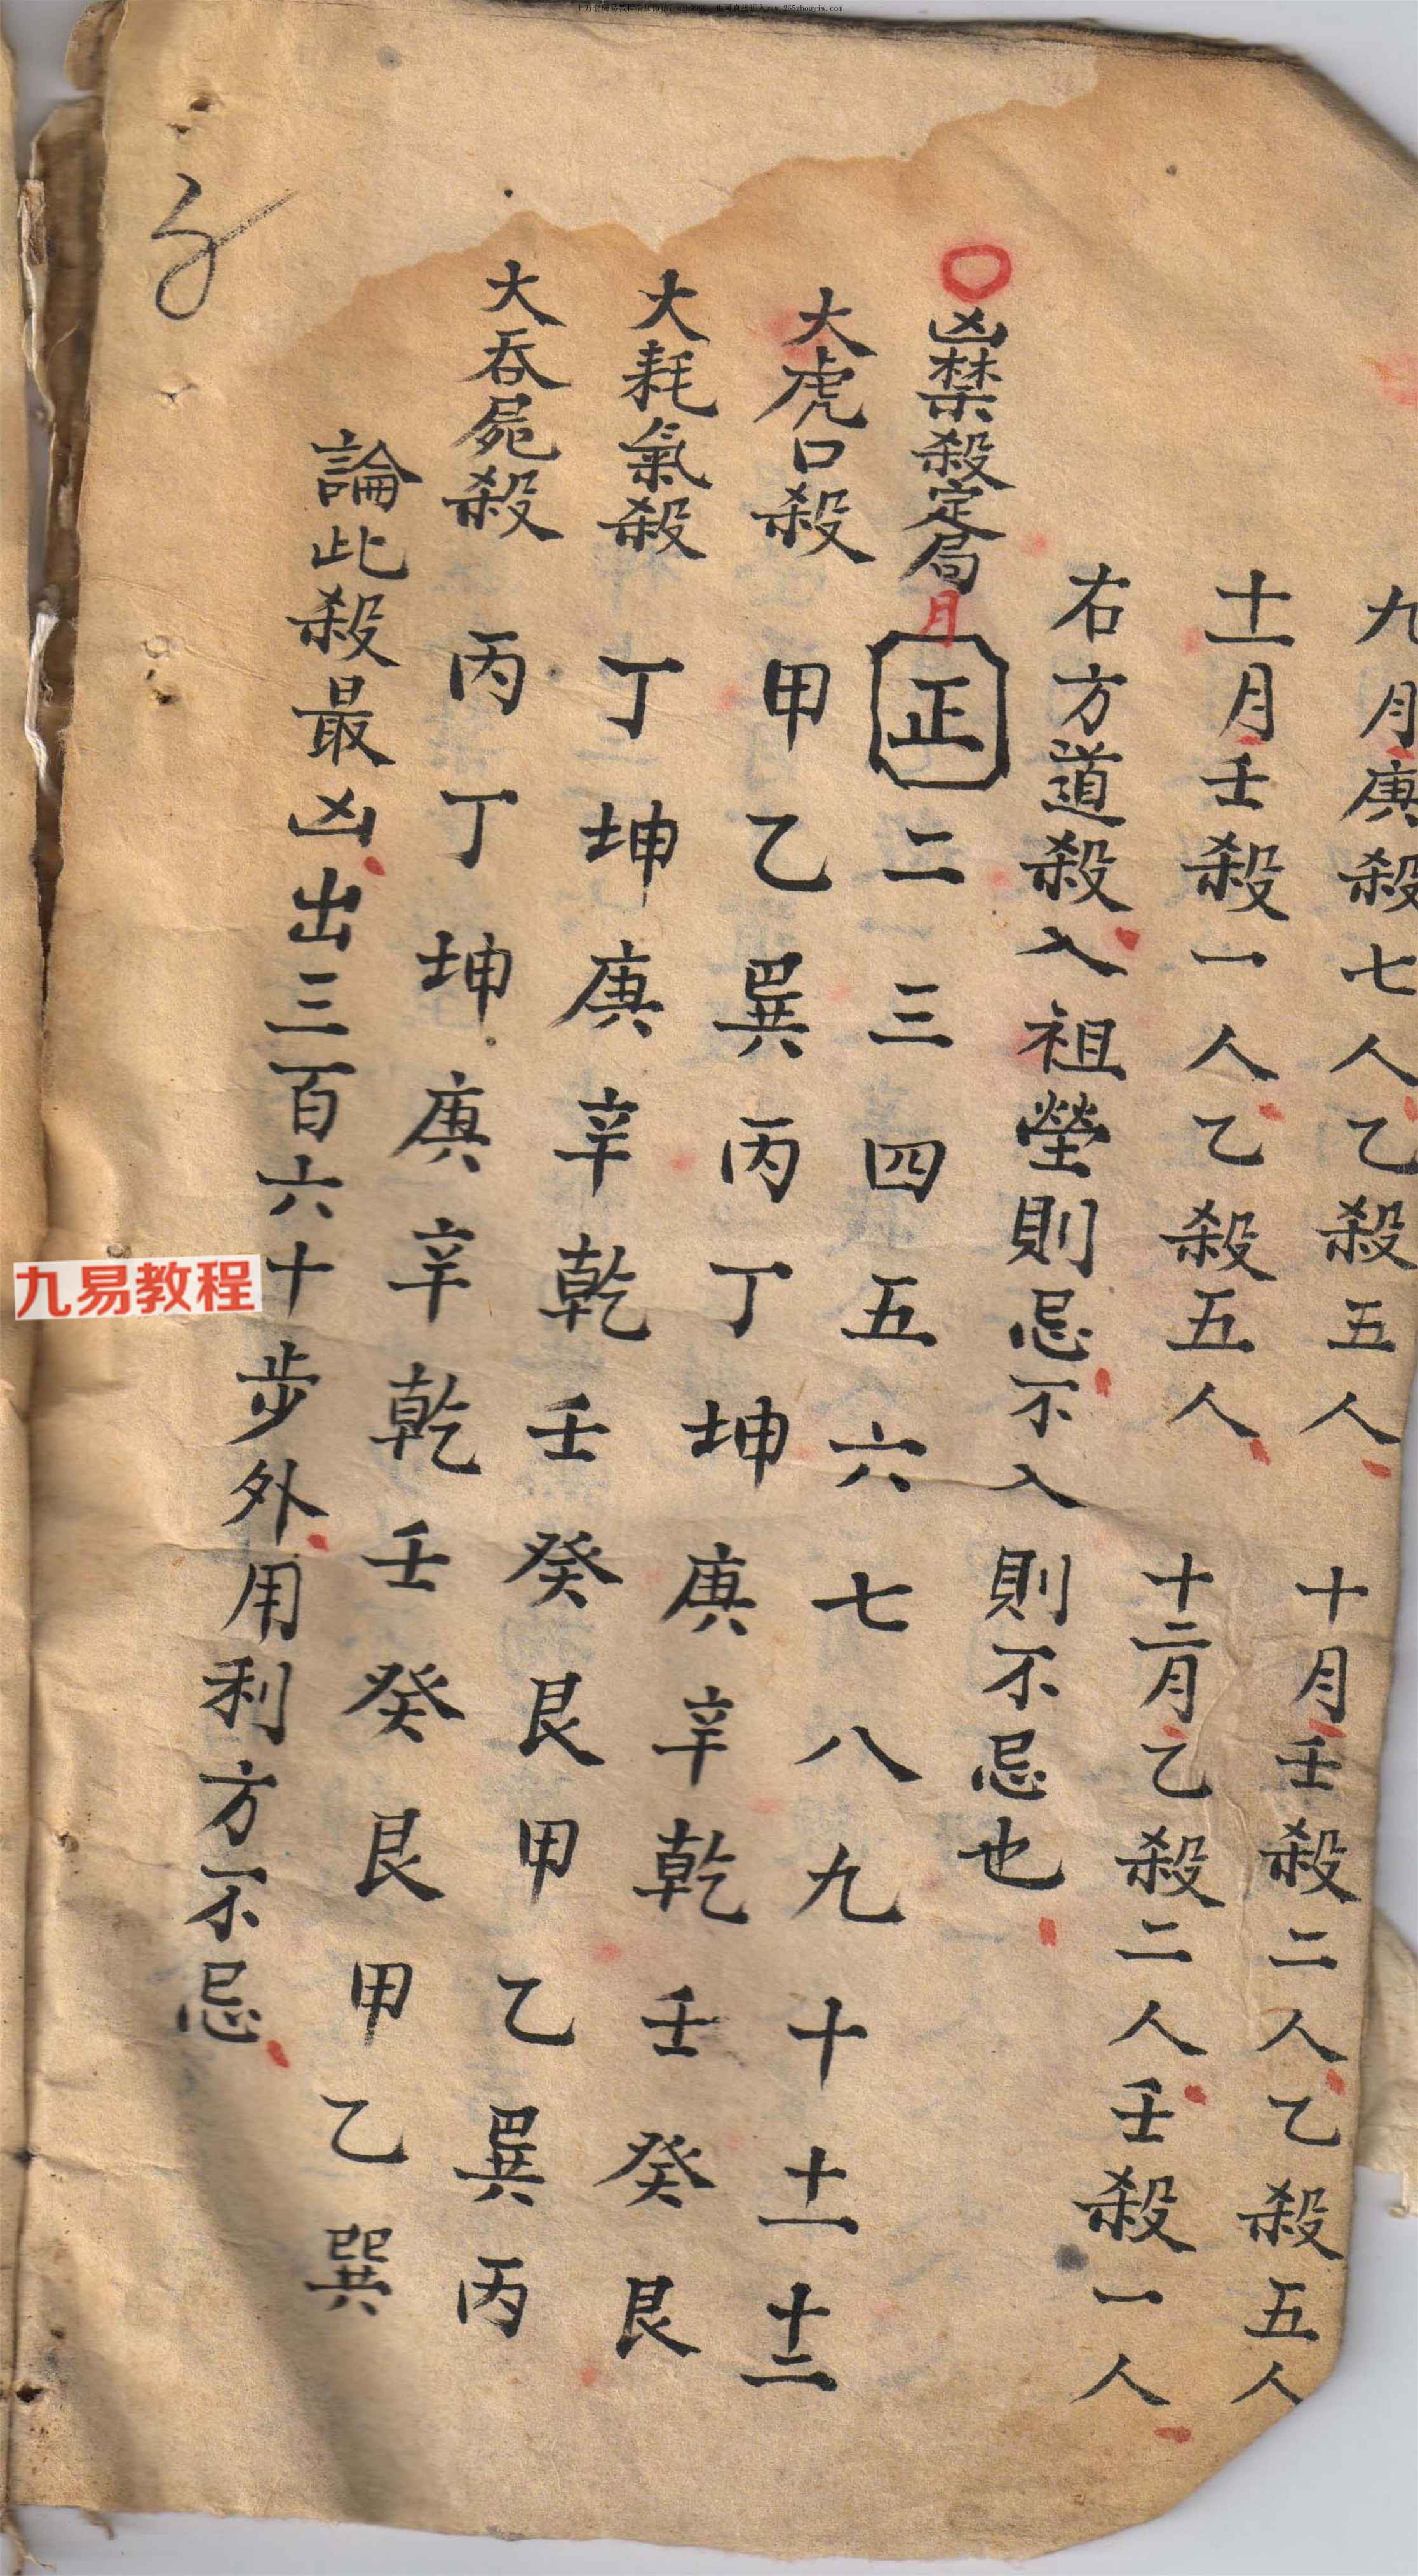 九月庚殺七人乙殺五人 十月壬殺二人乙殺五人
十一月壬殺一人乙殺五人 十二月乙殺二人壬殺一人
右方道殺入祖塋則忌不入則不忌也
〇凶禁殺定局月 正 二 三 四 五 六 七 八 九 十 十一 十二
大虎口殺 甲 乙 巽 丙 丁 坤 庚 辛 乾 壬 癸 艮
大耗氣殺 丁 坤 庚 辛 乾 壬 癸 艮 甲 乙 巽 丙
大吞屍殺 丙 丁 坤 庚 辛 乾 壬 癸 艮 甲 乙 巽
論此殺最凶出三百六十步外用利方不忌
九易教程